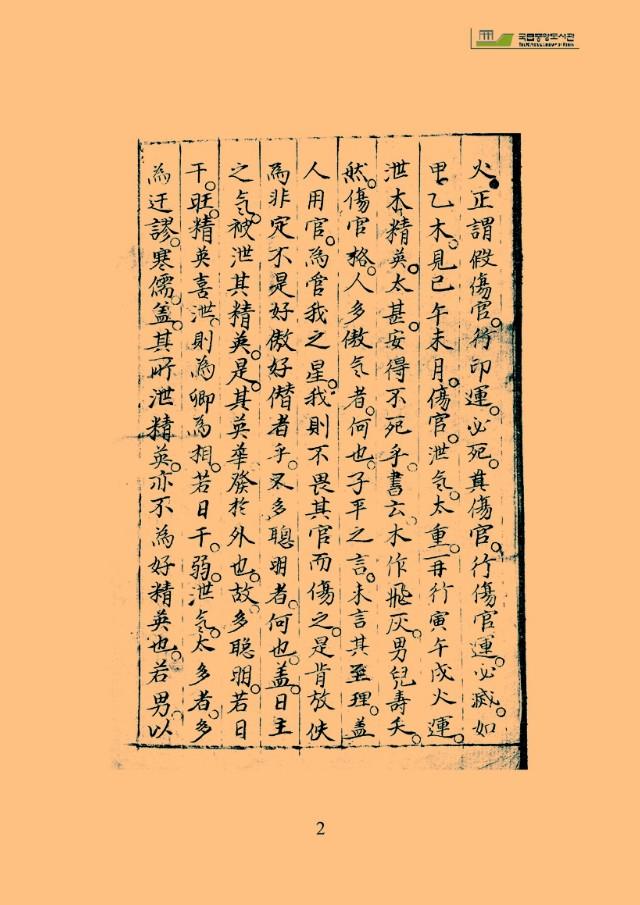 국립중앙도서관
火正謂假傷官。行印運。必死。真傷官。行傷官運。必滅。如
甲乙木。見巳午未月。傷官。泄氣。太重。再行寅午戌火運。
泄本精英。太甚。安得不死乎。書云。木作飛灰。男兒壽夭。
然。傷官格。人多傲气者。何也。子平之言。未言其至理。盖
人用官。為管我之星。我則不畏其官而傷之。是肯放佚
為非。定不是好傲好僭者乎。又多聰明者何也。盖日主
之气。被泄其精英。是其英華發於外也。故多聰明。若日
干。旺。精英喜泄。則為卿為相。若日干。弱。泄气。太多者。多
為迂謬。寒儒。盖其所泄精英。亦不為好精英也。若男以
2